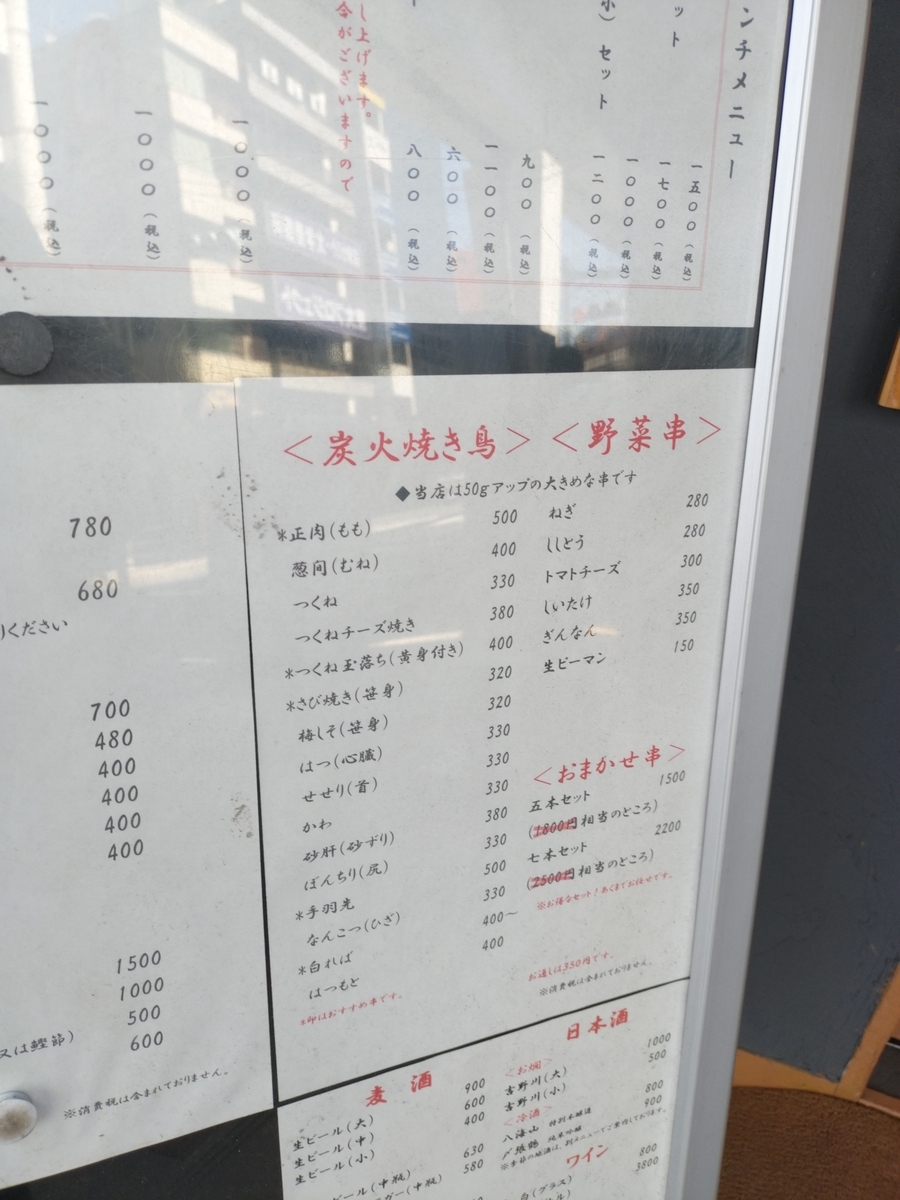 ンチメニュー
一五〇〇（税込）
ット
一七〇〇（税込）
一〇〇〇（税込）
小）セット
一二〇〇（税込）
九〇〇（税込）
一一〇〇（税込）
六〇〇（税込）
八〇〇（税込）
し上げます。
合がございますので
一〇〇〇（税込）
一〇〇〇（税込）
一〇〇〇（税込）
780
680
りください
700
480
400
400
400
400
1500
1000
500
又は鰹節) 600
※消費税は含まれておりません。
＜炭火焼き鳥＞ ＜野菜串＞
◆当店は50gアップの大きめな串です
*正肉(もも) 500
葱間(むね) 400
つくね 330
つくねチーズ焼き 380
*つくね玉落ち(黄身付き) 400
*さび焼き(笹身) 320
梅しそ(笹身) 320
はつ(心臓) 330
せせり(首) 330
かわ 330
砂肝(砂ずり) 380
ぼんちり(尻) 330
*手羽先 500
なんこつ(ひざ) 330
*白ればー 400～
はつもと 400
*印はおすすめ串です。
ねぎ 280
ししとう 280
トマトチーズ 300
しいたけ 350
ぎんなん 350
生ピーマン 150
＜おまかせ串＞
五本セット 1500
(1800円相当のところ)
七本セット 2200
(2500円相当のところ)
※お得なセット！あくまでお任せです。
お通しは350円です。
※消費税は含まれておりません。
麦酒
生ビール(大) 900
生ビール(中) 600
生ビール(小) 400
ビール(中瓶) 630
ガー(中瓶) 580
日本酒
＜お燗＞
吉野川(大) 1000
吉野川(小) 500
＜冷酒＞
八海山 特別本醸造 800
〆張鶴 純米吟醸 900
※季節の地酒は、別メニューでご案内しております。
ワイン
白(グラス) 800
3800